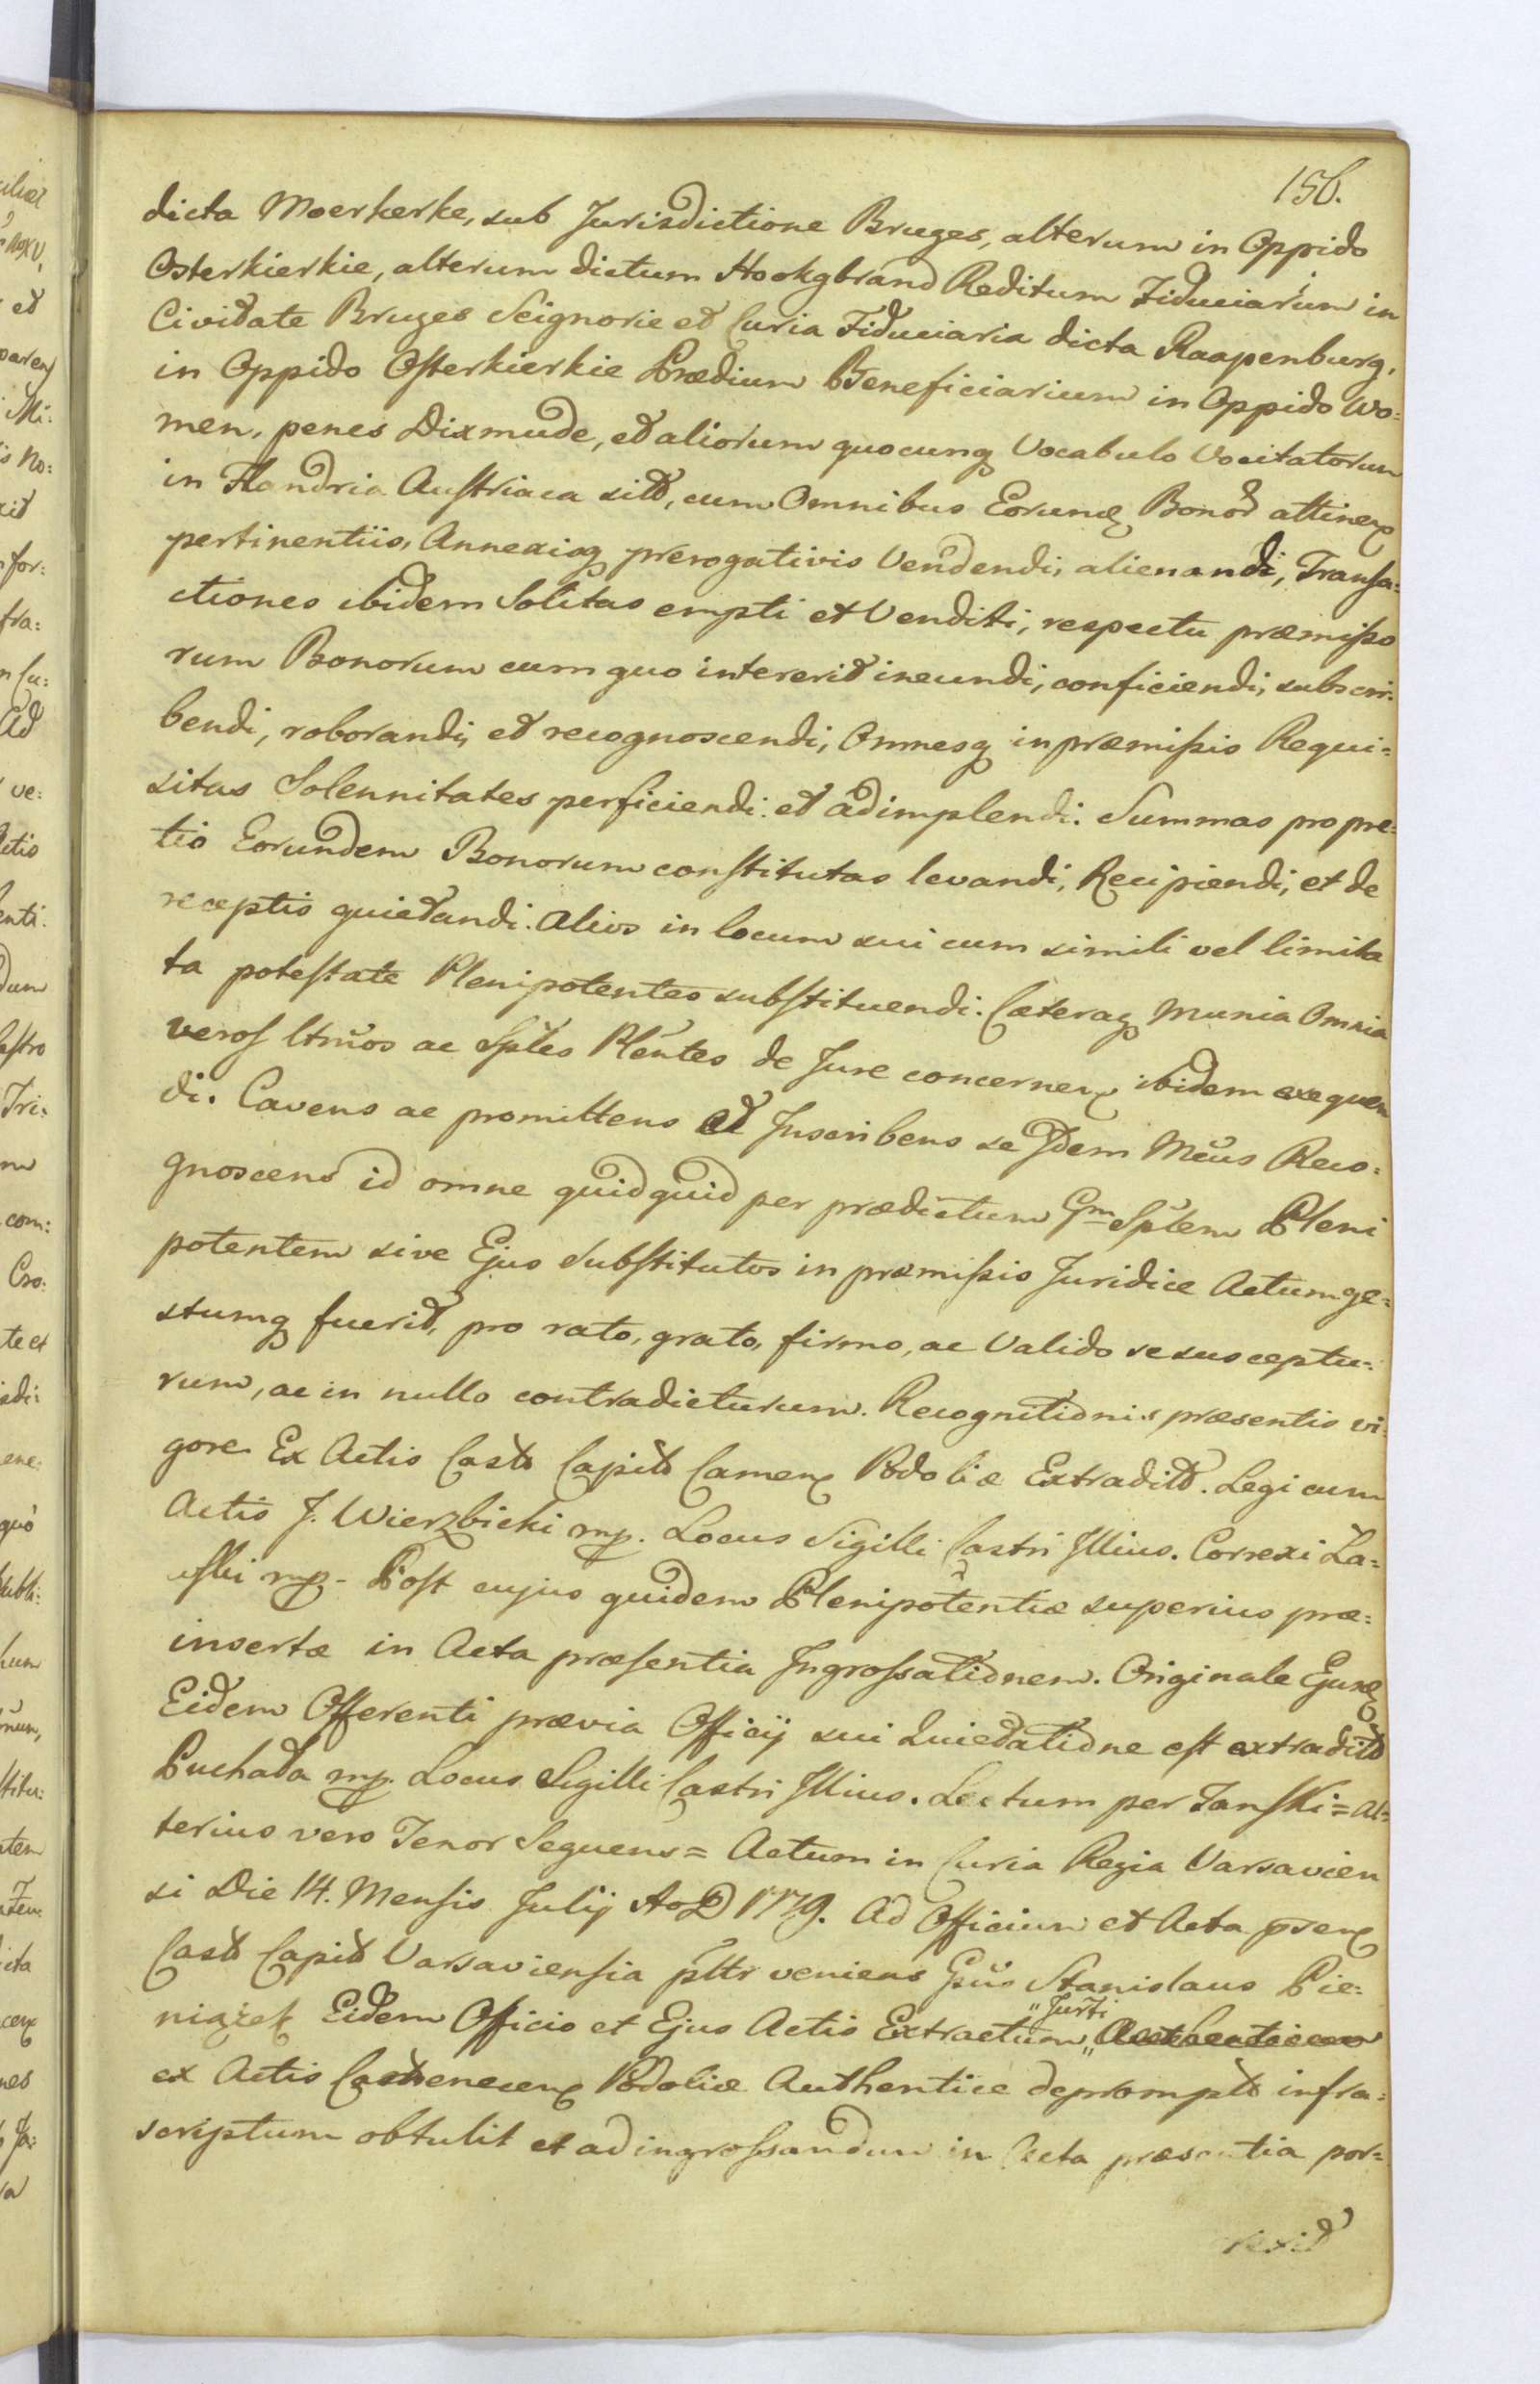 156.
dicta Moerkerke, sub Jurisdictione Bruges, alterum in Oppido
Osterkierkie, alterum dictum Hookgbrand Reditum Fiduciarium in
Civitate Bruges Seignorie et Curia Fiduciaria dicta Raapenburg,
in Oppido Osterkierkie Prædium Beneficiarium in Oppido Wo=
men, penes Dixmude, et aliorum quocunq Vocabulo Vocitatorum
in Flandria Austriaca sitt, cum Omnibus Eorund Bonor attinen
pertinentiis, Annexisq prerogativis Vendendi, alienandi, Transa=
ctiones ibidem Solitas empti et Venditi, respectu præmisso
rum Bonorum cum quo intererit ineundi, conficiendi, subscri=
bendi, roborandi, et recognoscendi, Omnesq in præmissis Requi=
sitas Solennitates perficiendi et adimplendi: Summas pro pre=
tio Eorundem Bonorum constitutas levandi, Recipiendi, et de
receptis quietandi. Alios in locum sui cum simili vel limita
ta potestate Plenipotentes substituendi. Cæteraq Munia Omnia
veros ltmos ac Sples Plentes de Jure concernen ibidem exequen
di. Cavens ac promittens et Inscribens se Idem Mcus Reco=
gnoscens id omne quidquid per prædictum Gm Splem Pleni
potentem sive Ejus Substitutos in præmissis Juridice Actum ge=
stumq fuerit, pro rato, grato, firmo, ac Valido se susceptu=
rum, ac in nullo contradicturum. Recognitionis præsentis vi=
gore. Ex Actis Castr Capit Camen Podoliæ Extradit. Legi cum
Actis J. Wierzbicki mp. Locus Sigilli Castri Illius. Correxi La=
ski mp. Post cujus quidem Plenipotentiæ superius præ=
insertæ in Acta præsentia Ingrossationem. Originale Ejusd
Eidem Offerenti prævia Officij sui Quietatione est extradit
Puchała mp. Locus Sigilli Castri Illius. Lectum per Janski = Al=
terius vero Tenor Sequens = Actum in Curia Regia Varsavien
si Die 14. Mensis Julij AoD 1779. Ad Officium et Acta psen
Castr Capit Varsaviensia pltr veniens Gsus Stanislaus Pie=
niążek Eidem Officio et Ejus Actis Extractum "Jurti
ex Actis Castr Podoliæ Authentice deprompt infra=
scriptum obtulit et ad ingrossandum in Acta præsentia por=
rexit